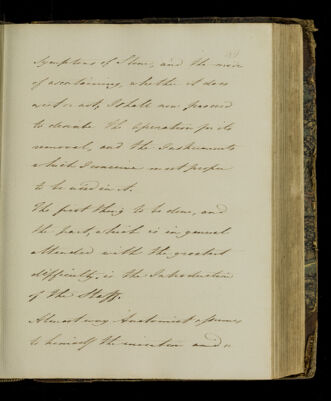 Symptoms of Stone, and the mode
of ascertaining, whether it does
exist or not, I shall now proceed
to describe the Operation for its
removal, and the Instruments
which I conceive most proper
to be used in it.
The first thing to be done, and
the part, which is in general
attended with the greatest
difficulty, is the Introduction
of the Staff.
Almost every Anatomist assumes
to himself the invention and